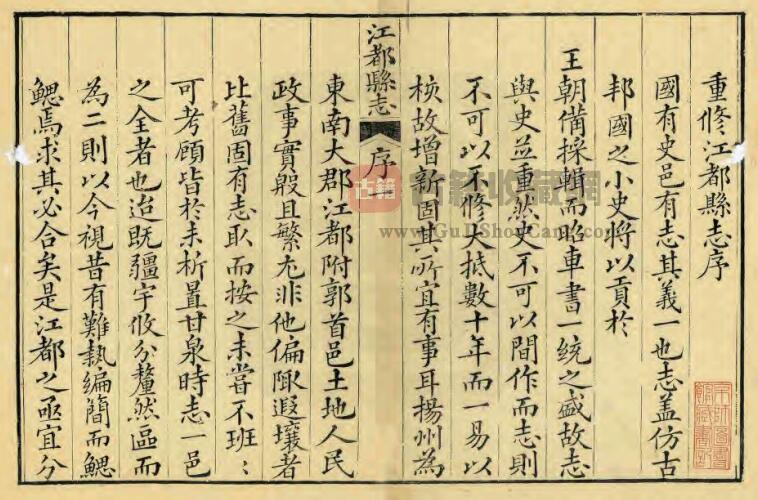 重修江都縣志序
國有史邑有志其義一也志盖仿古
邦國之小史將以貢於
王朝備採輯而昭車書一統之盛故志
與史並重然史不可以間作而志則
不可以不修大抵數十年而一易以
核故增新固其所宜有事耳揚州為
江都縣志
序
東南大郡江都附郭首邑土地人民
政事實殷且繁尤非他偏陬遐壤者
比舊固有志取而按之未嘗不班〻
可考顧皆於未析置甘泉時志一邑
之全者也迨既疆宇攸分釐然區而
為二則以今視昔有難執編簡而鰓
鰓焉求其必合矣是江都之亟宜分
古籍
古籍收藏網